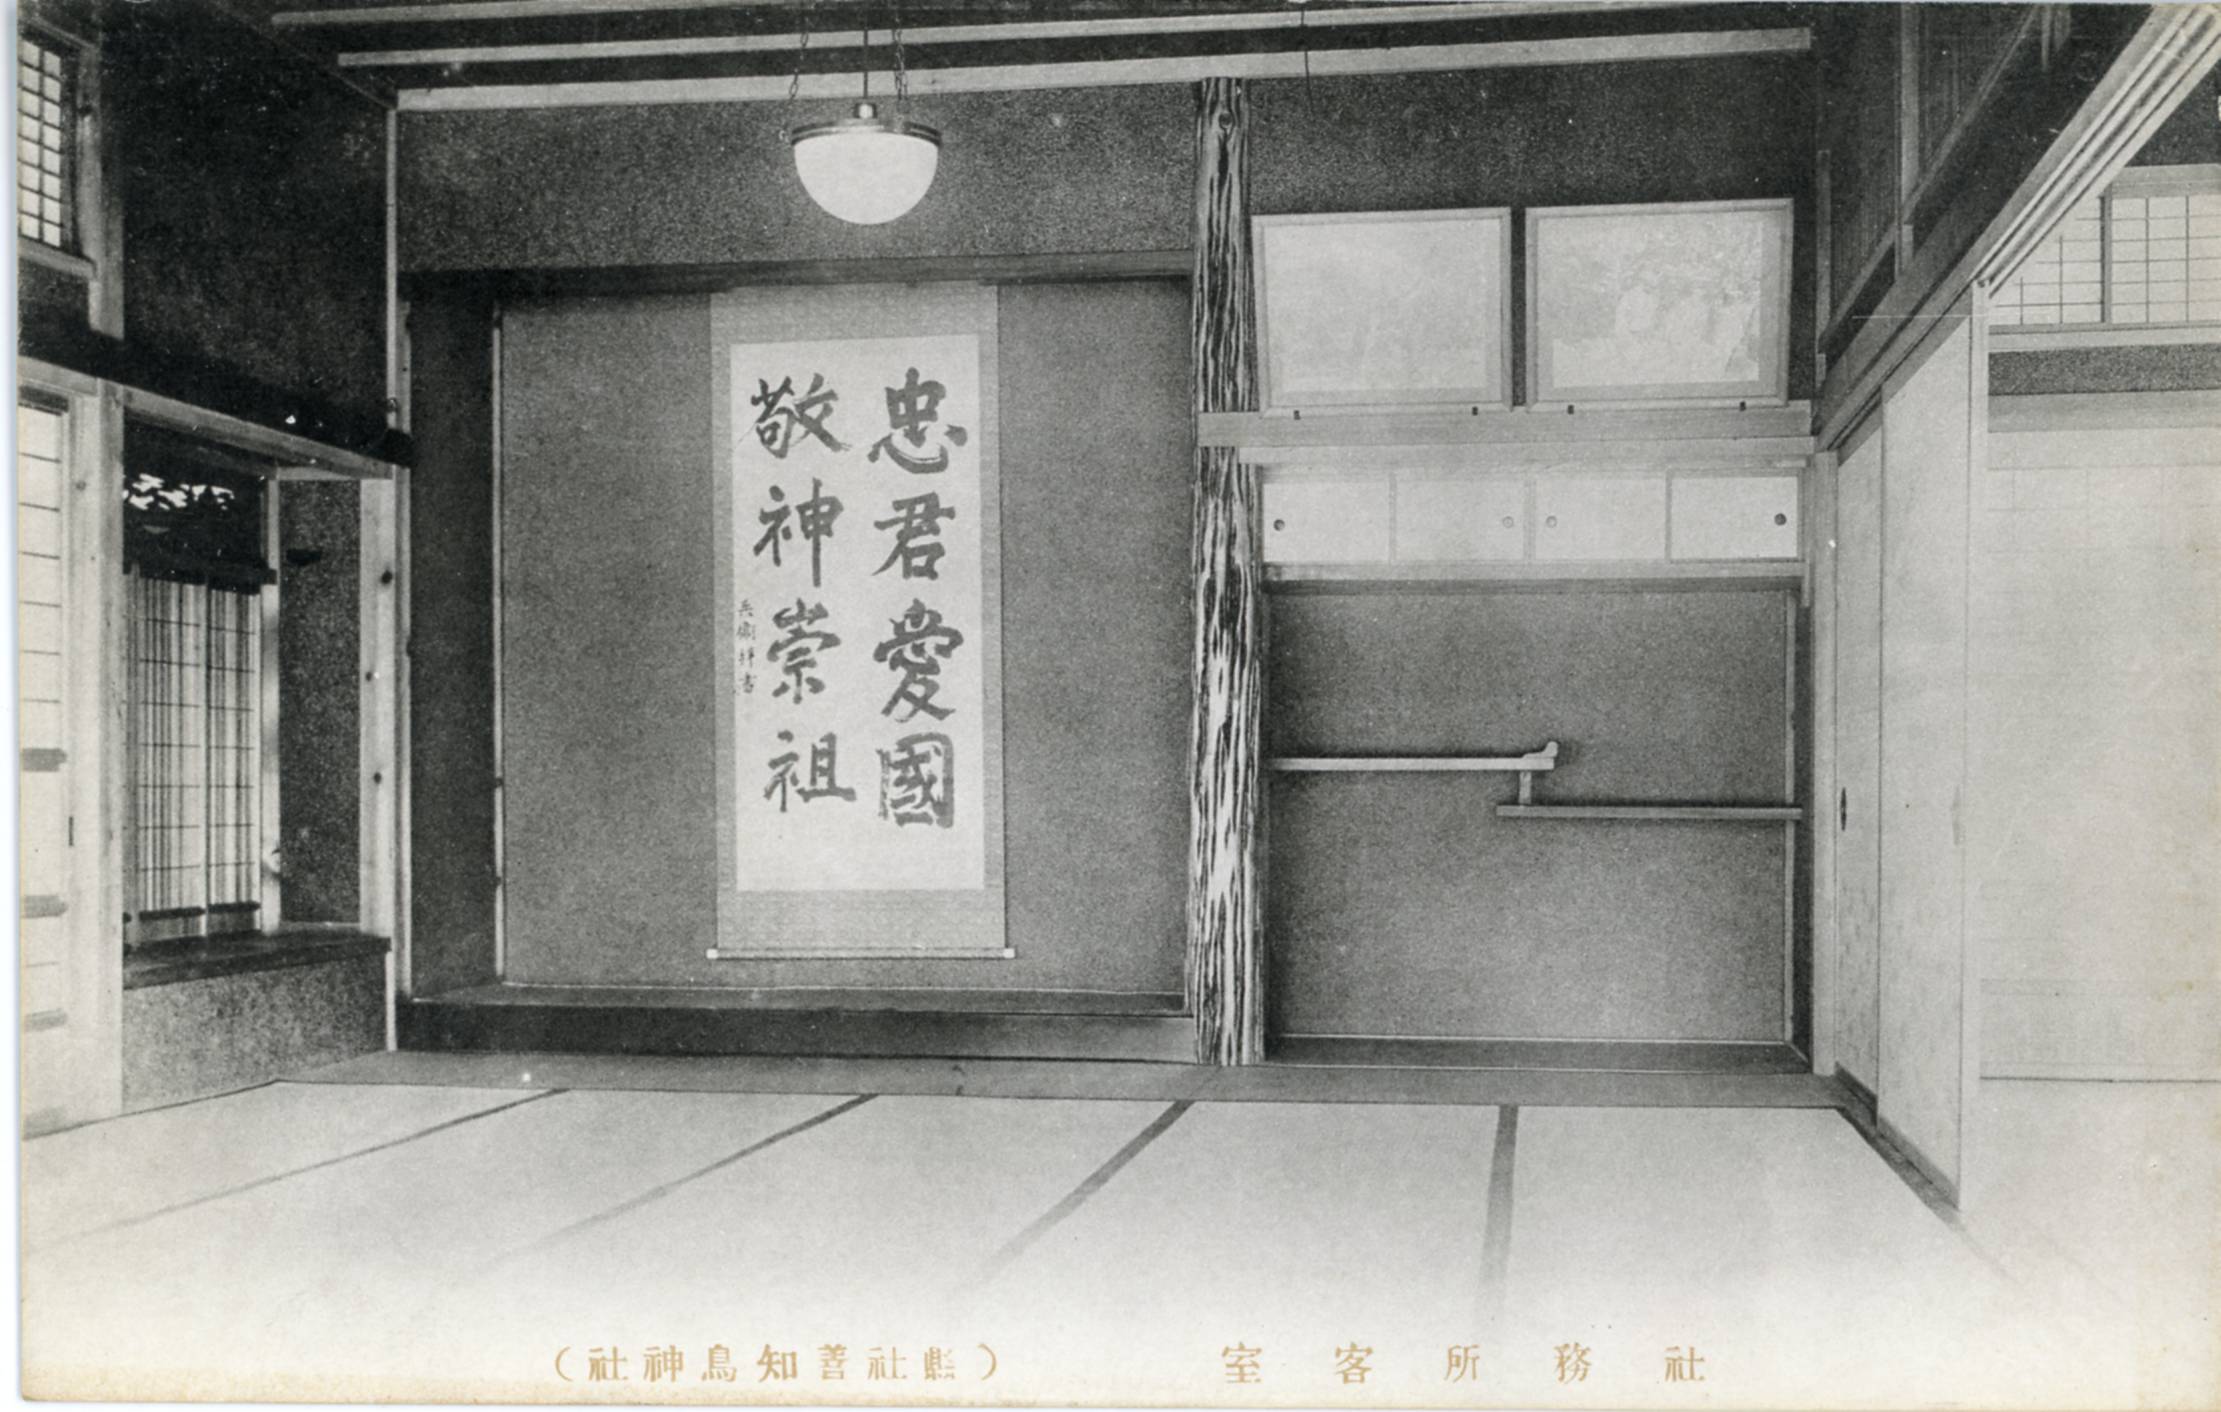 忠君愛國
敬神崇祖
兵衛拝書
社務所客室
(縣社善知鳥神社)